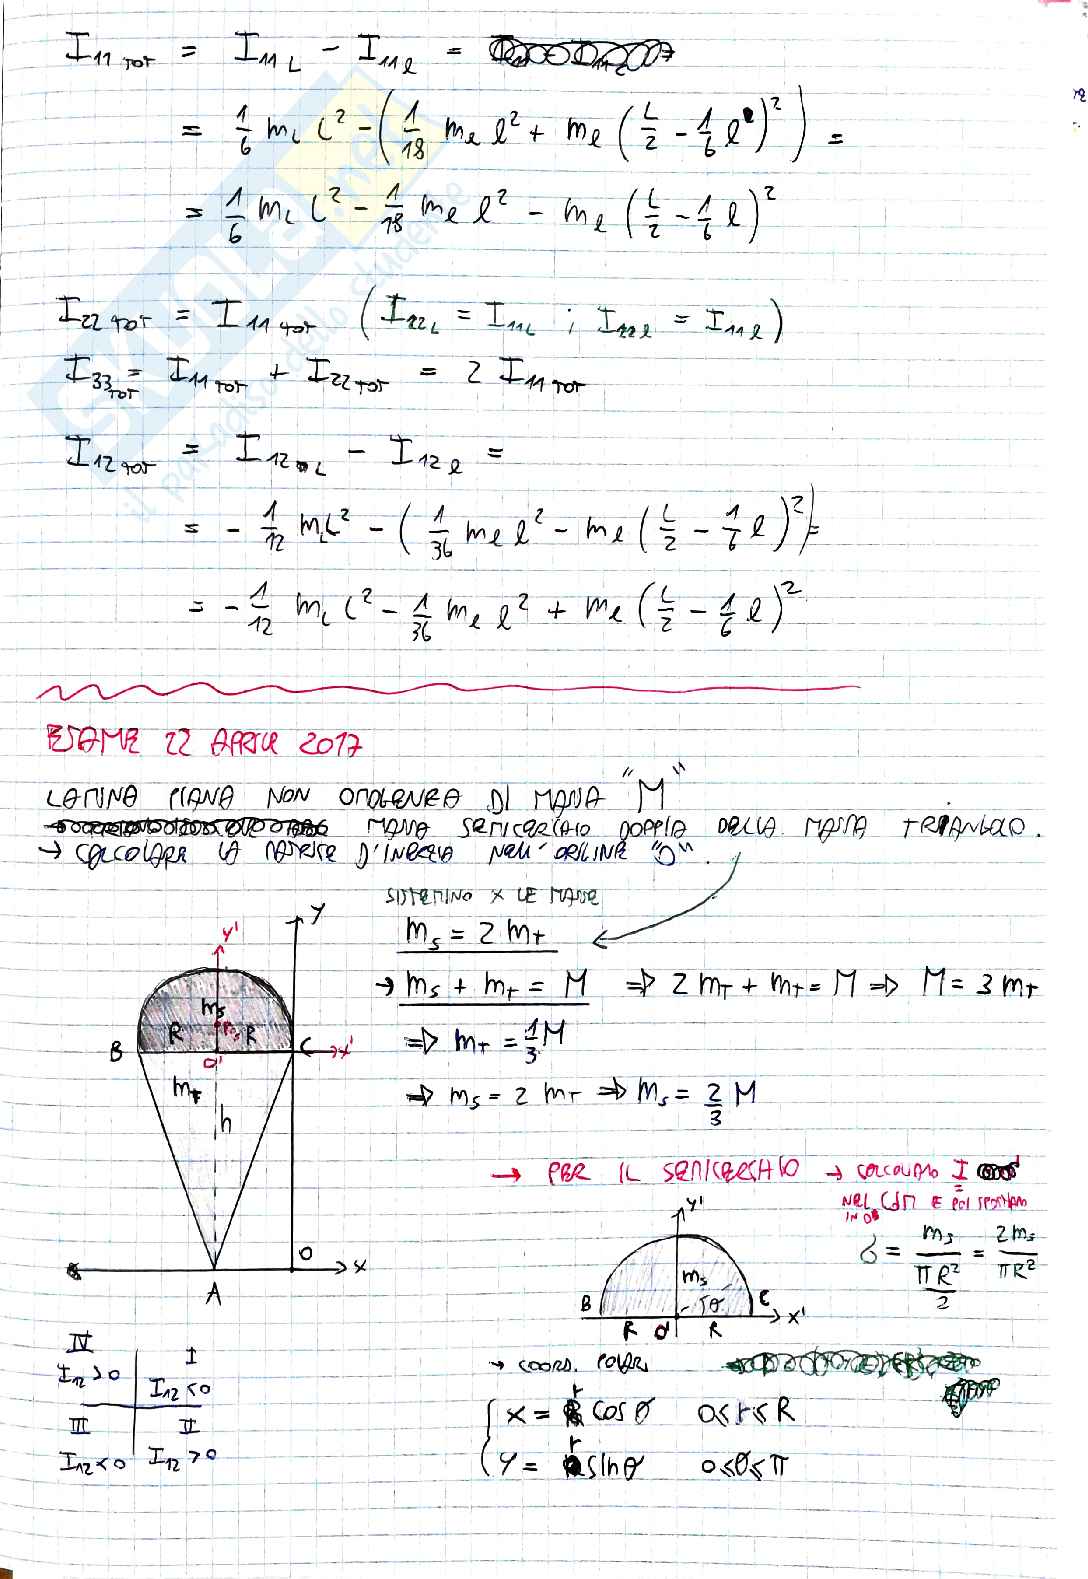 I₁₁ TOT = I₁₁ L − I₁₁ ℓ =
= 1/6 m_L L² − (1/18 m_ℓ ℓ² + m_ℓ (L/2 − 1/6 ℓ)²) =
= 1/6 m_L L² − 1/18 m_ℓ ℓ² − m_ℓ (L/2 − 1/6 ℓ)²
I₂₂ TOT = I₁₁ TOT (I₂₂L = I₁₁L ; I₂₂ℓ = I₁₁ℓ)
I₃₃ TOT = I₁₁ TOT + I₂₂ TOT = 2 I₁₁ TOT
I₁₂ TOT = I₁₂ L − I₁₂ ℓ =
= − 1/12 m_L L² − (1/36 m_ℓ ℓ² − m_ℓ (L/2 − 1/6 ℓ)²) =
= − 1/12 m_L L² − 1/36 m_ℓ ℓ² + m_ℓ (L/2 − 1/6 ℓ)²
ESAME 22 APRILE 2017
LAMINA PIANA NON OMOGENEA DI MASSA "M"
MASSA SEMICERCHIO DOPPIA DELLA MASSA TRIANGOLO.
→ CALCOLARE LA MATRICE D'INERZIA NELL'ORIGINE "O".
SISTEMINO X LE MASSE
m_s = 2 m_T
→ m_s + m_T = M ⇒ 2 m_T + m_T = M ⇒ M = 3 m_T
⇒ m_T = 1/3 M
⇒ m_s = 2 m_T ⇒ m_s = 2/3 M
y
y'
m_s
R
R
B
O'
C
x'
m_T
h
O
x
A
→ PER IL SEMICERCHIO → CALCOLIAMO I
NEL CDM E POI SPOSTIAMO
IN O
σ = m_s / (πR²/2) = 2m_s / πR²
y'
m_s
B
θ
C
R
O'
R
x'
→ COORD. POLARI
x = r cos θ 0 ≤ r ≤ R
y = r sin θ 0 ≤ θ ≤ π
IV
I
I₁₂ > 0
I₁₂ < 0
III
II
I₁₂ < 0
I₁₂ > 0
SKUOLA.net
il paradiso dello studente